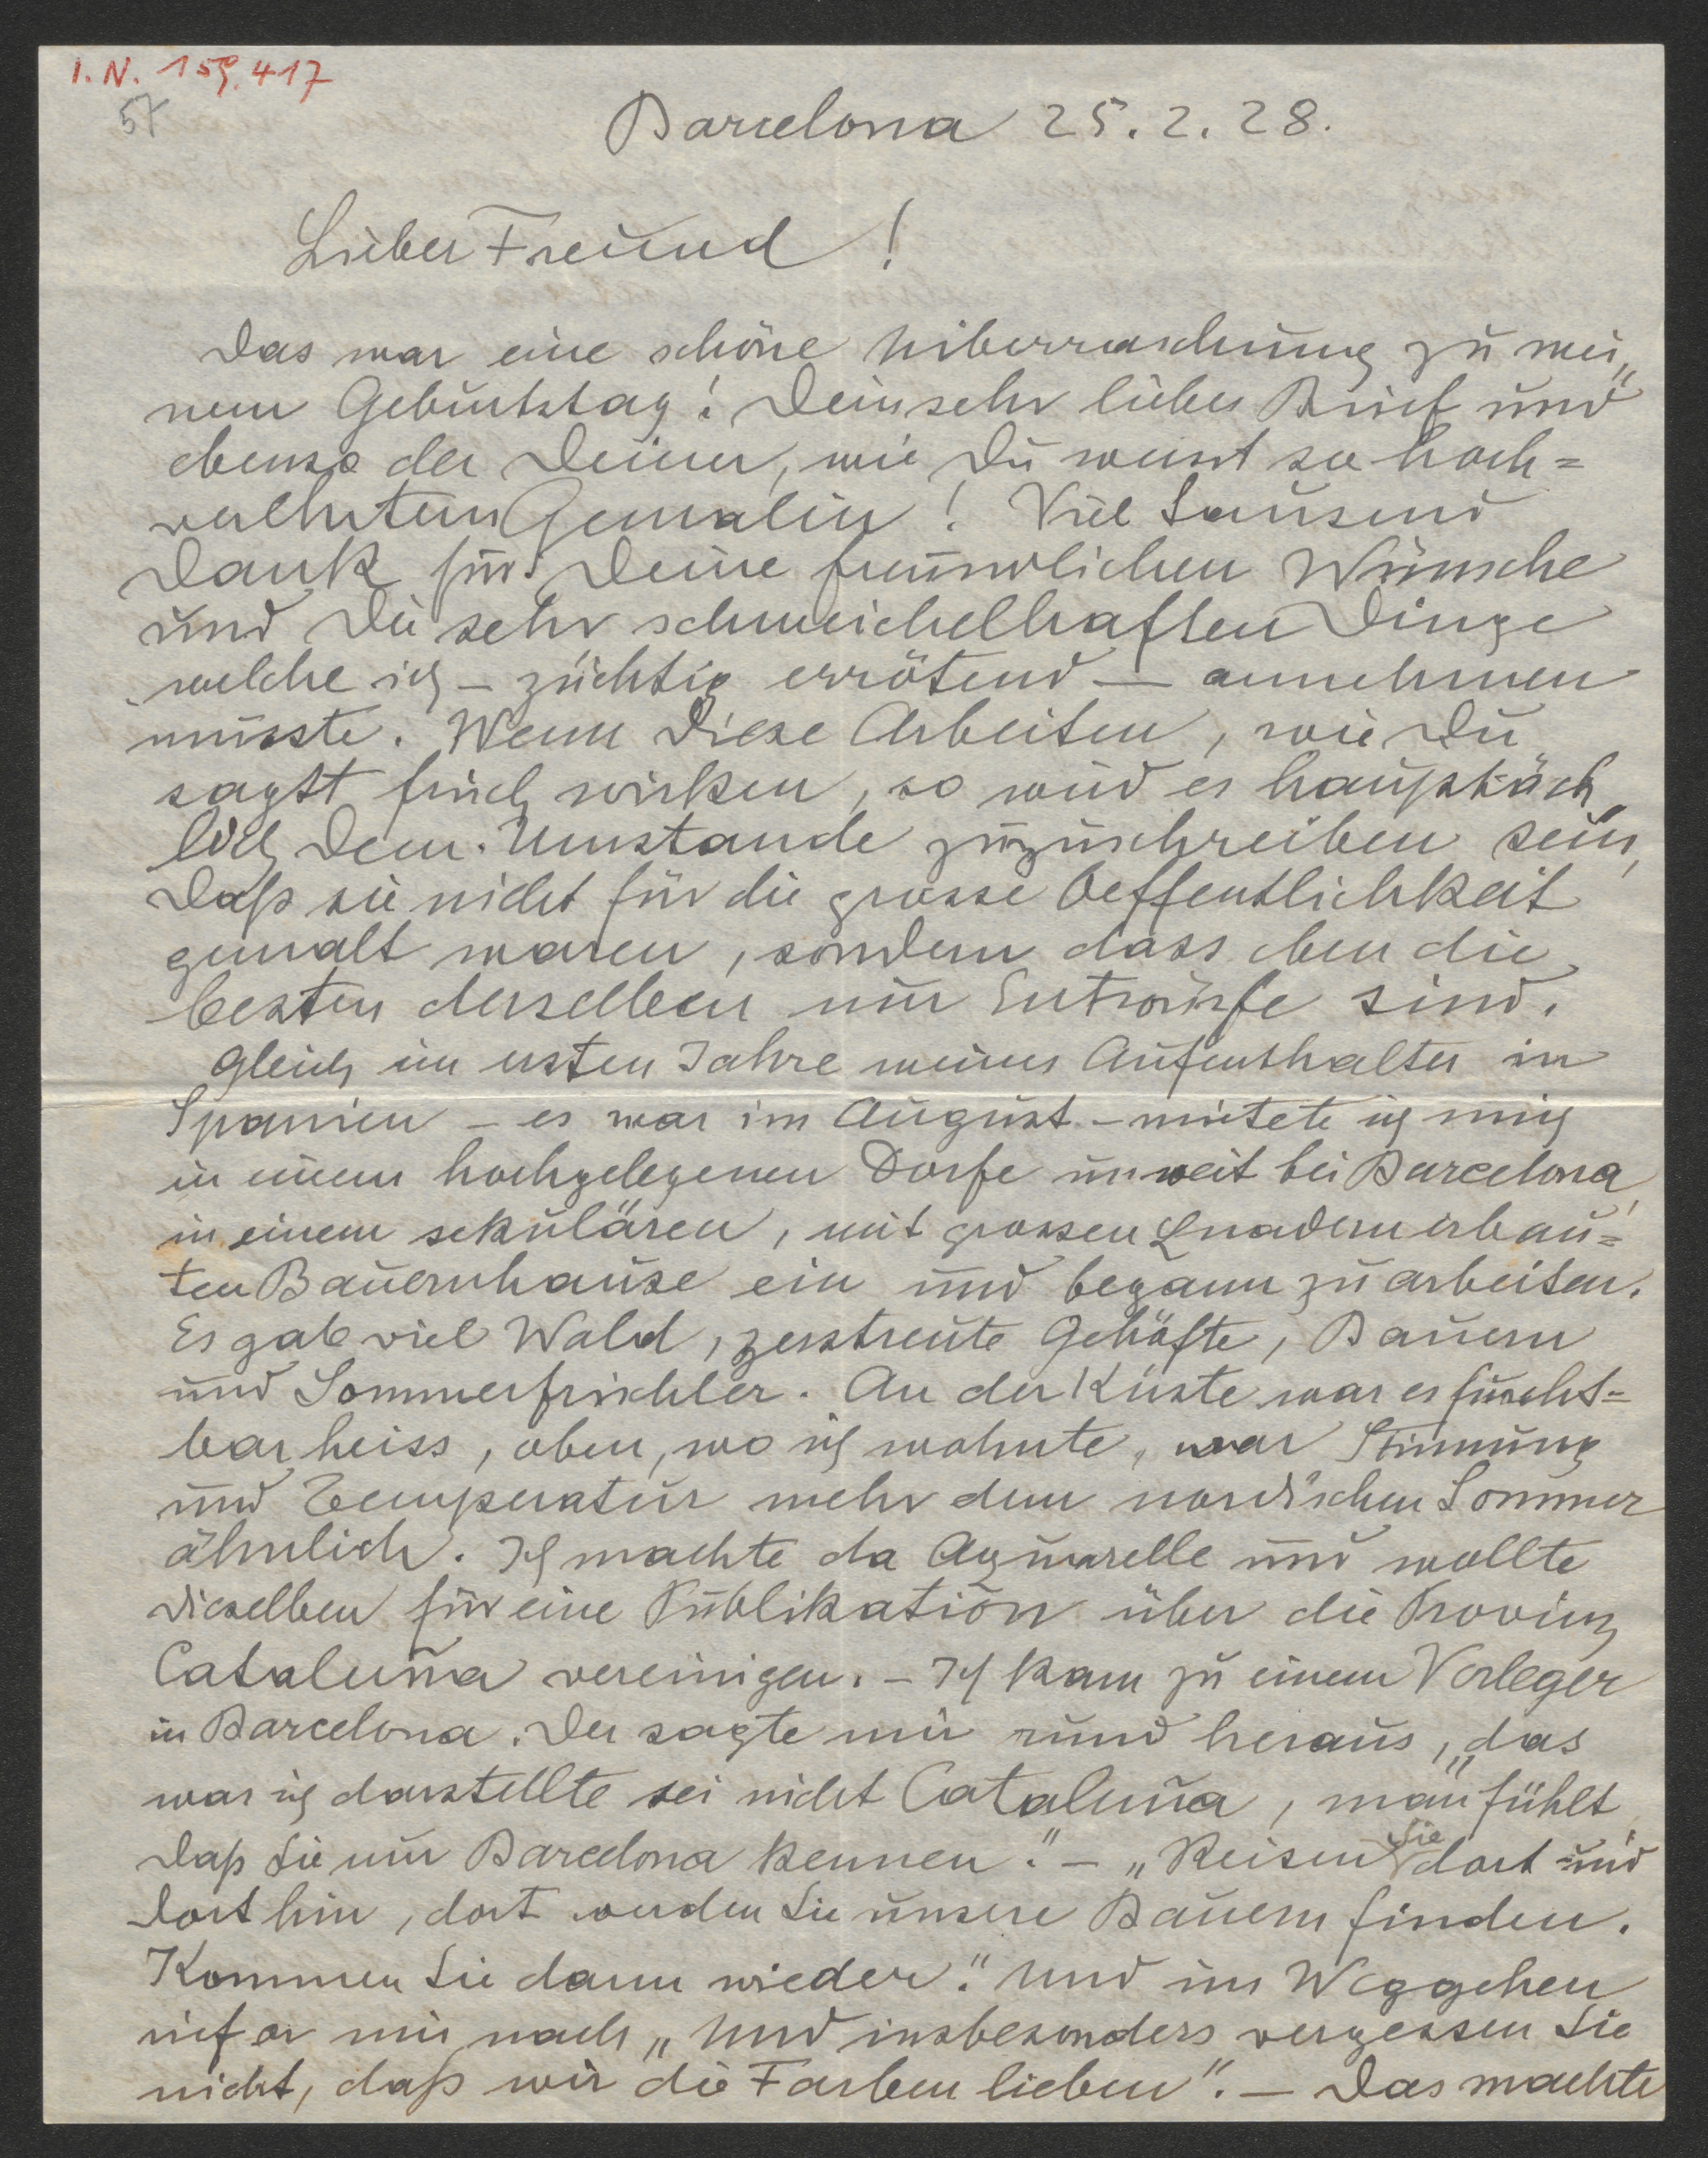 I.N. 159.417
57
Barcelona 25.2.28.
Lieber Freund!
Das war eine schöne Ueberraschung zu mei„
nem Geburtstag! Dein sehr lieber Brief und
ebenso der Deiner, wie Du weisst so hoch=
verehrten Gemalin! Viel Tausend
Dank für Deine freundlichen Wünsche
und Die sehr schmeichelhaften Dinge
welche ich – züchtig errötend – annehmen
musste. Wenn Diese Arbeiten, wie Du
sagst frisch wirken, so wird es hauptsäch„
lich Dem Umstande zuzuschreiben sein,
Daß sie nicht für die grosse Oeffentlichkeit
gemalt waren, sondern dass eben die
besten derselben nur Entwürfe sind.
Gleich im ersten Jahre meines Aufenthaltes in
Spanien – es war im August – mietete ich mich
in einem hochgelegenen Dorfe unweit bei Barcelona,
in einem sekulären, mit grossen Quadern erbau=
ten Bauernhause ein und begann zu arbeiten.
Es gab viel Wald, zerstreute Gehöfte, Bauern
und Sommerfrischler. An der Küste war es furcht=
bar heiss, oben, wo ich wohnte, war Stimmung
und Temperatur mehr dem nordischen Sommer
ähnlich. Ich machte da Aquarelle und wollte
dieselben für eine Publikation über die Provinz
Cataluña vereinigen. – Ich kam zu einem Verleger
in Barcelona. Der sagte mir rund heraus, „das
was ich darstellte sei nicht Cataluña, man fühlt,
Daß Sie nur Barcelona kennen." – „Reisen Sie dort und
Dort hin, dort werden Sie unsere Bauern finden.
Kommen Sie dann wieder." Und im Weggehen
rief er mir nach „Und insbesonders vergessen Sie
nicht, daß wir die Farben lieben". – Das machte